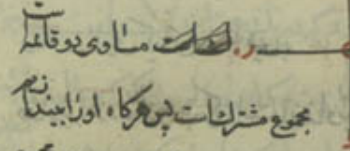 مساوی دو قائمه
مجموع مشترکات پس هرکاه او را بیندازیم